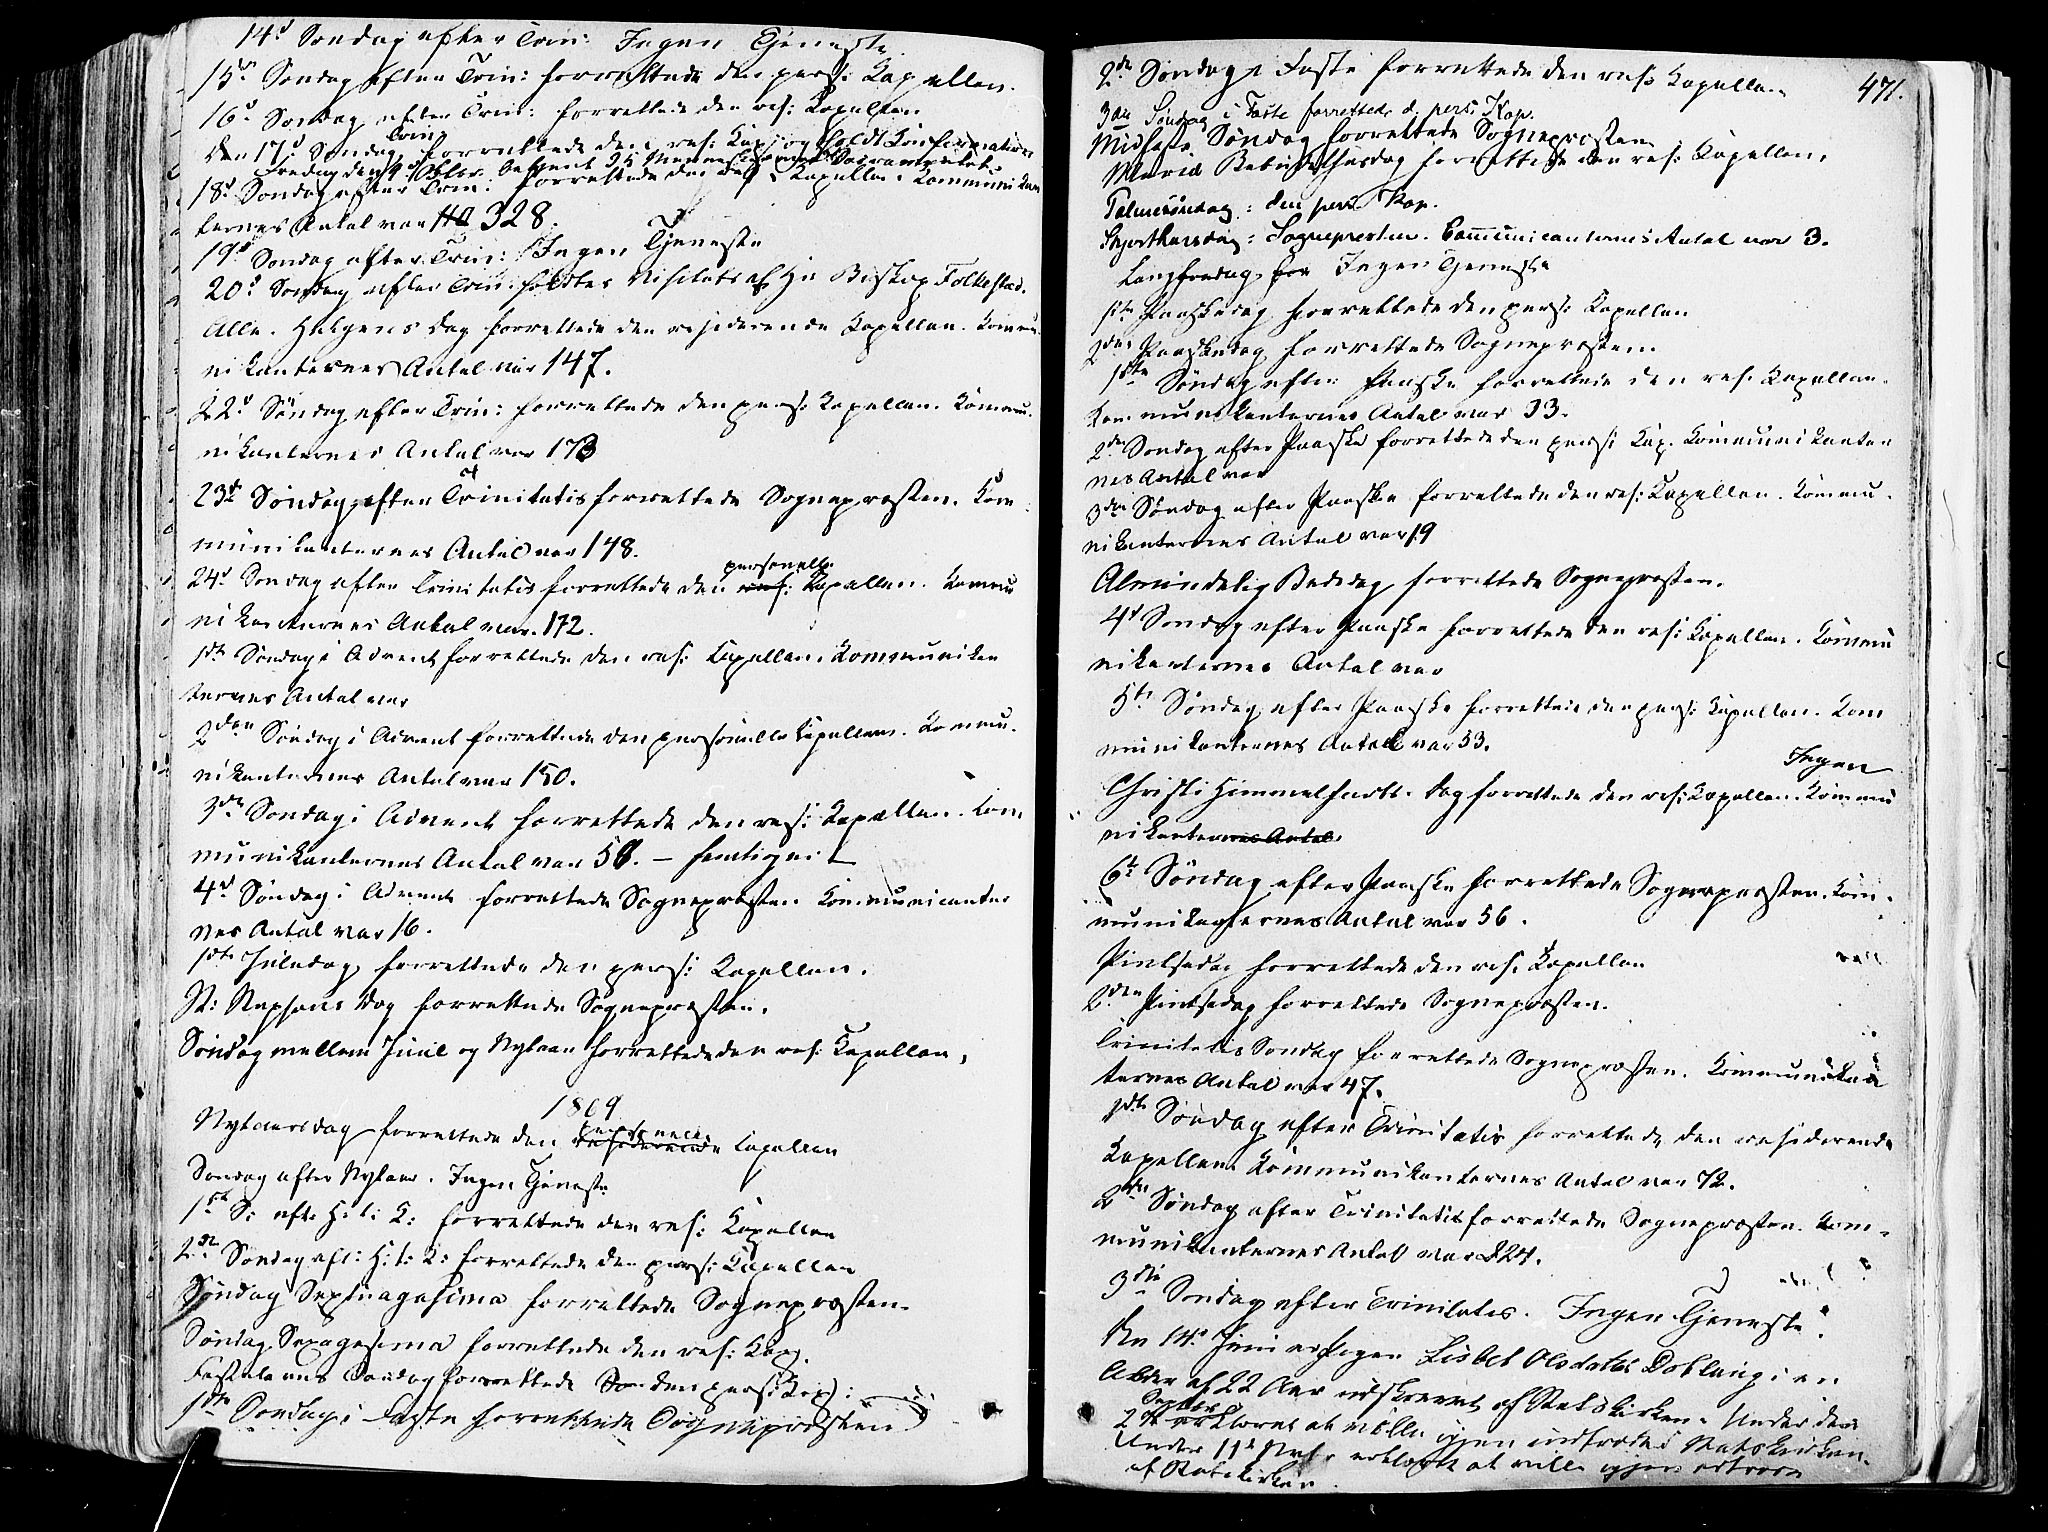 14d Søndag efter Trin: Ingen Tjeneste
15d Søndag efter Trin: forrettede den pers: Kapellan.
16d Søndag efter Trin: forrettede den res: Kapellan
Den 17d Søndag Trin forrettede den res: Kap: og holdt Konfirmation
Fredag den 2 Oktbr. betjent 25 Mennesker med Sacramentet.
18d Søndag efter Trin: forrettede den res: Kapellan Kommunikan
ternes Antal var 328.
19d Søndag efter Trin: Ingen Tjeneste
20d Søndag efter Trin: holdtes Visitats af Hr Biskop Folkestad.
Alle Helgens Dag forrettede den residerende Kapellan. Kommu
nikanternes Antal var 147.
22d Søndag efter Trin: forrettede den pers: Kapellan. Kommu-
nikanternes Antal var 173
23de Søndag efter Trinitatis forrettede Sognepræsten. Kom
munikanternes Antal var 148.
24d Søndag efter Trinitatis forrettede den res: personelle Kapellan. Kommu
nikanternes Antal var 172.
1ste Søndag i Advent forrettede den res: Kapellan. Kommunikan
ternes Antal var
2den Søndag i Advent forrettede den personelle Kapellan. Kommu-
nikanternes Antal var 150.
3die Søndag i Advent forrettede den res: Kapellan. Kom
munikanternes Antal var 51. – femtigei
4d Søndag i Advent forrettede Sognepræsten Kommunicanter
nes Antal var 16.
1ste Juledag forrettede den pers: Kapellan.
St: Stephans Dag forrettede Sognepræsten.
Søndag mellem Juul og Nytaar forrettede den res: Kapellan,
1869
Nytaarsdag forrettede den residerende personelle Kapellan
Søndag efter Nytaar. Ingen Tjeneste
1ste S: eft: H: t: K: forrettede den res: Kapellan
2den Søndag eft: H: t: K: forrettede den pers: Kapellan
Søndag Septuagesima forrettede Sognepræsten.
Søndag Sexagesima forrettede den res: Kap.
Fastelavns Søndag forrettede den pers: Kap:
1ste Søndag i Faste forrettede Sognepræsten
471.
2de Søndag i Faste forrettede den res: Kapellan
3die Søndag i Faste forrettede d. pers. Kap.
Midfaste Søndag forrettede Sognepræsten
Mariæ Bebudelsesdag forrettede den res: Kapellan.
Palmesøndag: den pers. Kap.
Skjærthorsdag: Sognepresten. Communicanternes Antal var 3.
Langfredag for Ingen Tjeneste
1ste Paaskedag forrettede den pers: Kapellan
2den Paaskedag forrettede Sognepræsten.
1ste Søndag efter Paaske forrettede den res: Kapellan.
Kommunikanternes Antal var 33.
2den Søndag efter Paaske forrettede den pers: Kap. Kommunikanter
nes Antal var
3die Søndag efter Paaske forrettede den res: Kapellan. Kommu-
nikanternes Antal var 19
Almindelig Bededag forrettede Sognepræsten.
4d Søndag efter Paaske forrettede den res: Kapellan. Kommu
nikanternes Antal var
5te Søndag efter Paaske forrettede den pers: Kapellan. Kom
munikanternes Antal var 53.
Ingen
Christi Himmelfarts Dag forrettede den res: Kapellan. Kommu
nikanternes Antal
6te Søndag efter Paaske forrettede Sognepræsten. Kom-
munikanternes Antal var 56.
Pintsedag forrettede den res. Kapellan
2den Pintsedag forrettede Sognepræsten.
Trinitatis Søndag forrettede Sognepræsten. Kommunikan
ternes Antal var 47.
1ste Søndag efter Trinitatis forrettede den residerende
Kapellan Kommunikanternes Antal var 72.
2den Søndag efter Trinitatis forrettede Sognepræsten. Kom-
munikanternes Antal var 224.
3die Søndag efter Trinitatis. Ingen Tjeneste.
Den 14d Juni er Pigen Lisbet Olsdatter Doblaug i en
Alder af 22 Aar udskrevet af Statskirken. Under den
2d Septbr erklæret at ville igjen indtræde i Statskirken.
Under 11te Novbr erklæret at ville igjen udtræde
af Statskirken.